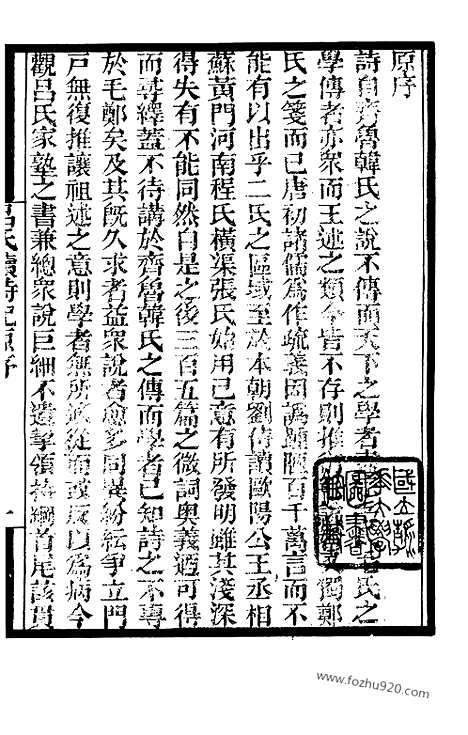 原序
詩自齊魯韓氏之說不傳而天下之學者盡宗毛氏之
學傳者亦眾而王述之類今皆不存則推衍說者獨鄭
氏之箋而已唐初諸儒為作疏義因訛踵陋百千萬言而不
能有以出乎二氏之區域至於本朝劉侍讀歐陽公王丞相
蘇黃門河南程氏橫渠張氏始用己意有所發明雖其淺深
得失有不能同然自是之後三百五篇之微詞奧義迺可得
而尋繹蓋不待講於齊魯韓氏之傳而學者已知詩之不專
於毛鄭矣及其既久求者益眾說者愈多同異紛紜爭立門
戶無復推讓祖述之意則學者無所適從而或反以為病今
觀呂氏家塾之書兼總眾說巨細不遺挈領持綱首尾該貫
呂氏讀詩記原序 一
www.fozhu920.com